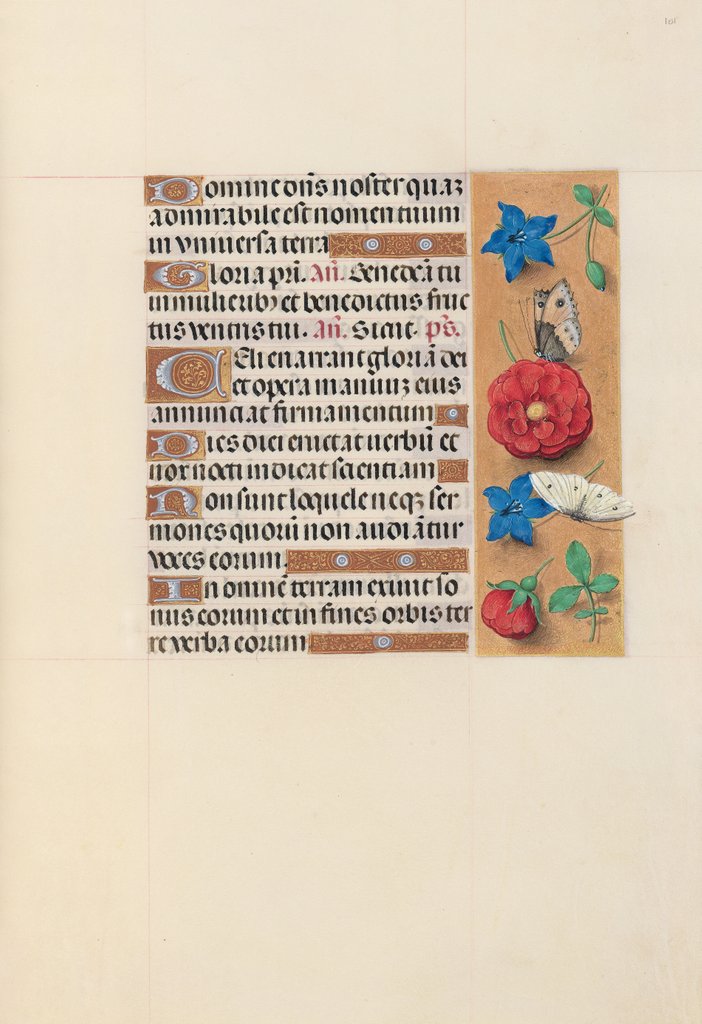 Domine dñs noster qua3
admirabile est nomen tuum
in vniuersa terra
Gloria pri. An̄. Benedc̄a tu
in mulierib3 et benedictus fruc
tus ventris tui. An̄. Sicut. ps̄.
Celi enarrant gloriā dei
et opera manuu3 eius
annunciat firmamentum
Dies diei eructat uerbū et
nox nocti indicat scientiam
Non sunt loquele neq3 ser
mones quorū non audiātur
voces eorum.
In omnē terram exiuit so
nus eorum et in fines orbis ter
re verba eorum